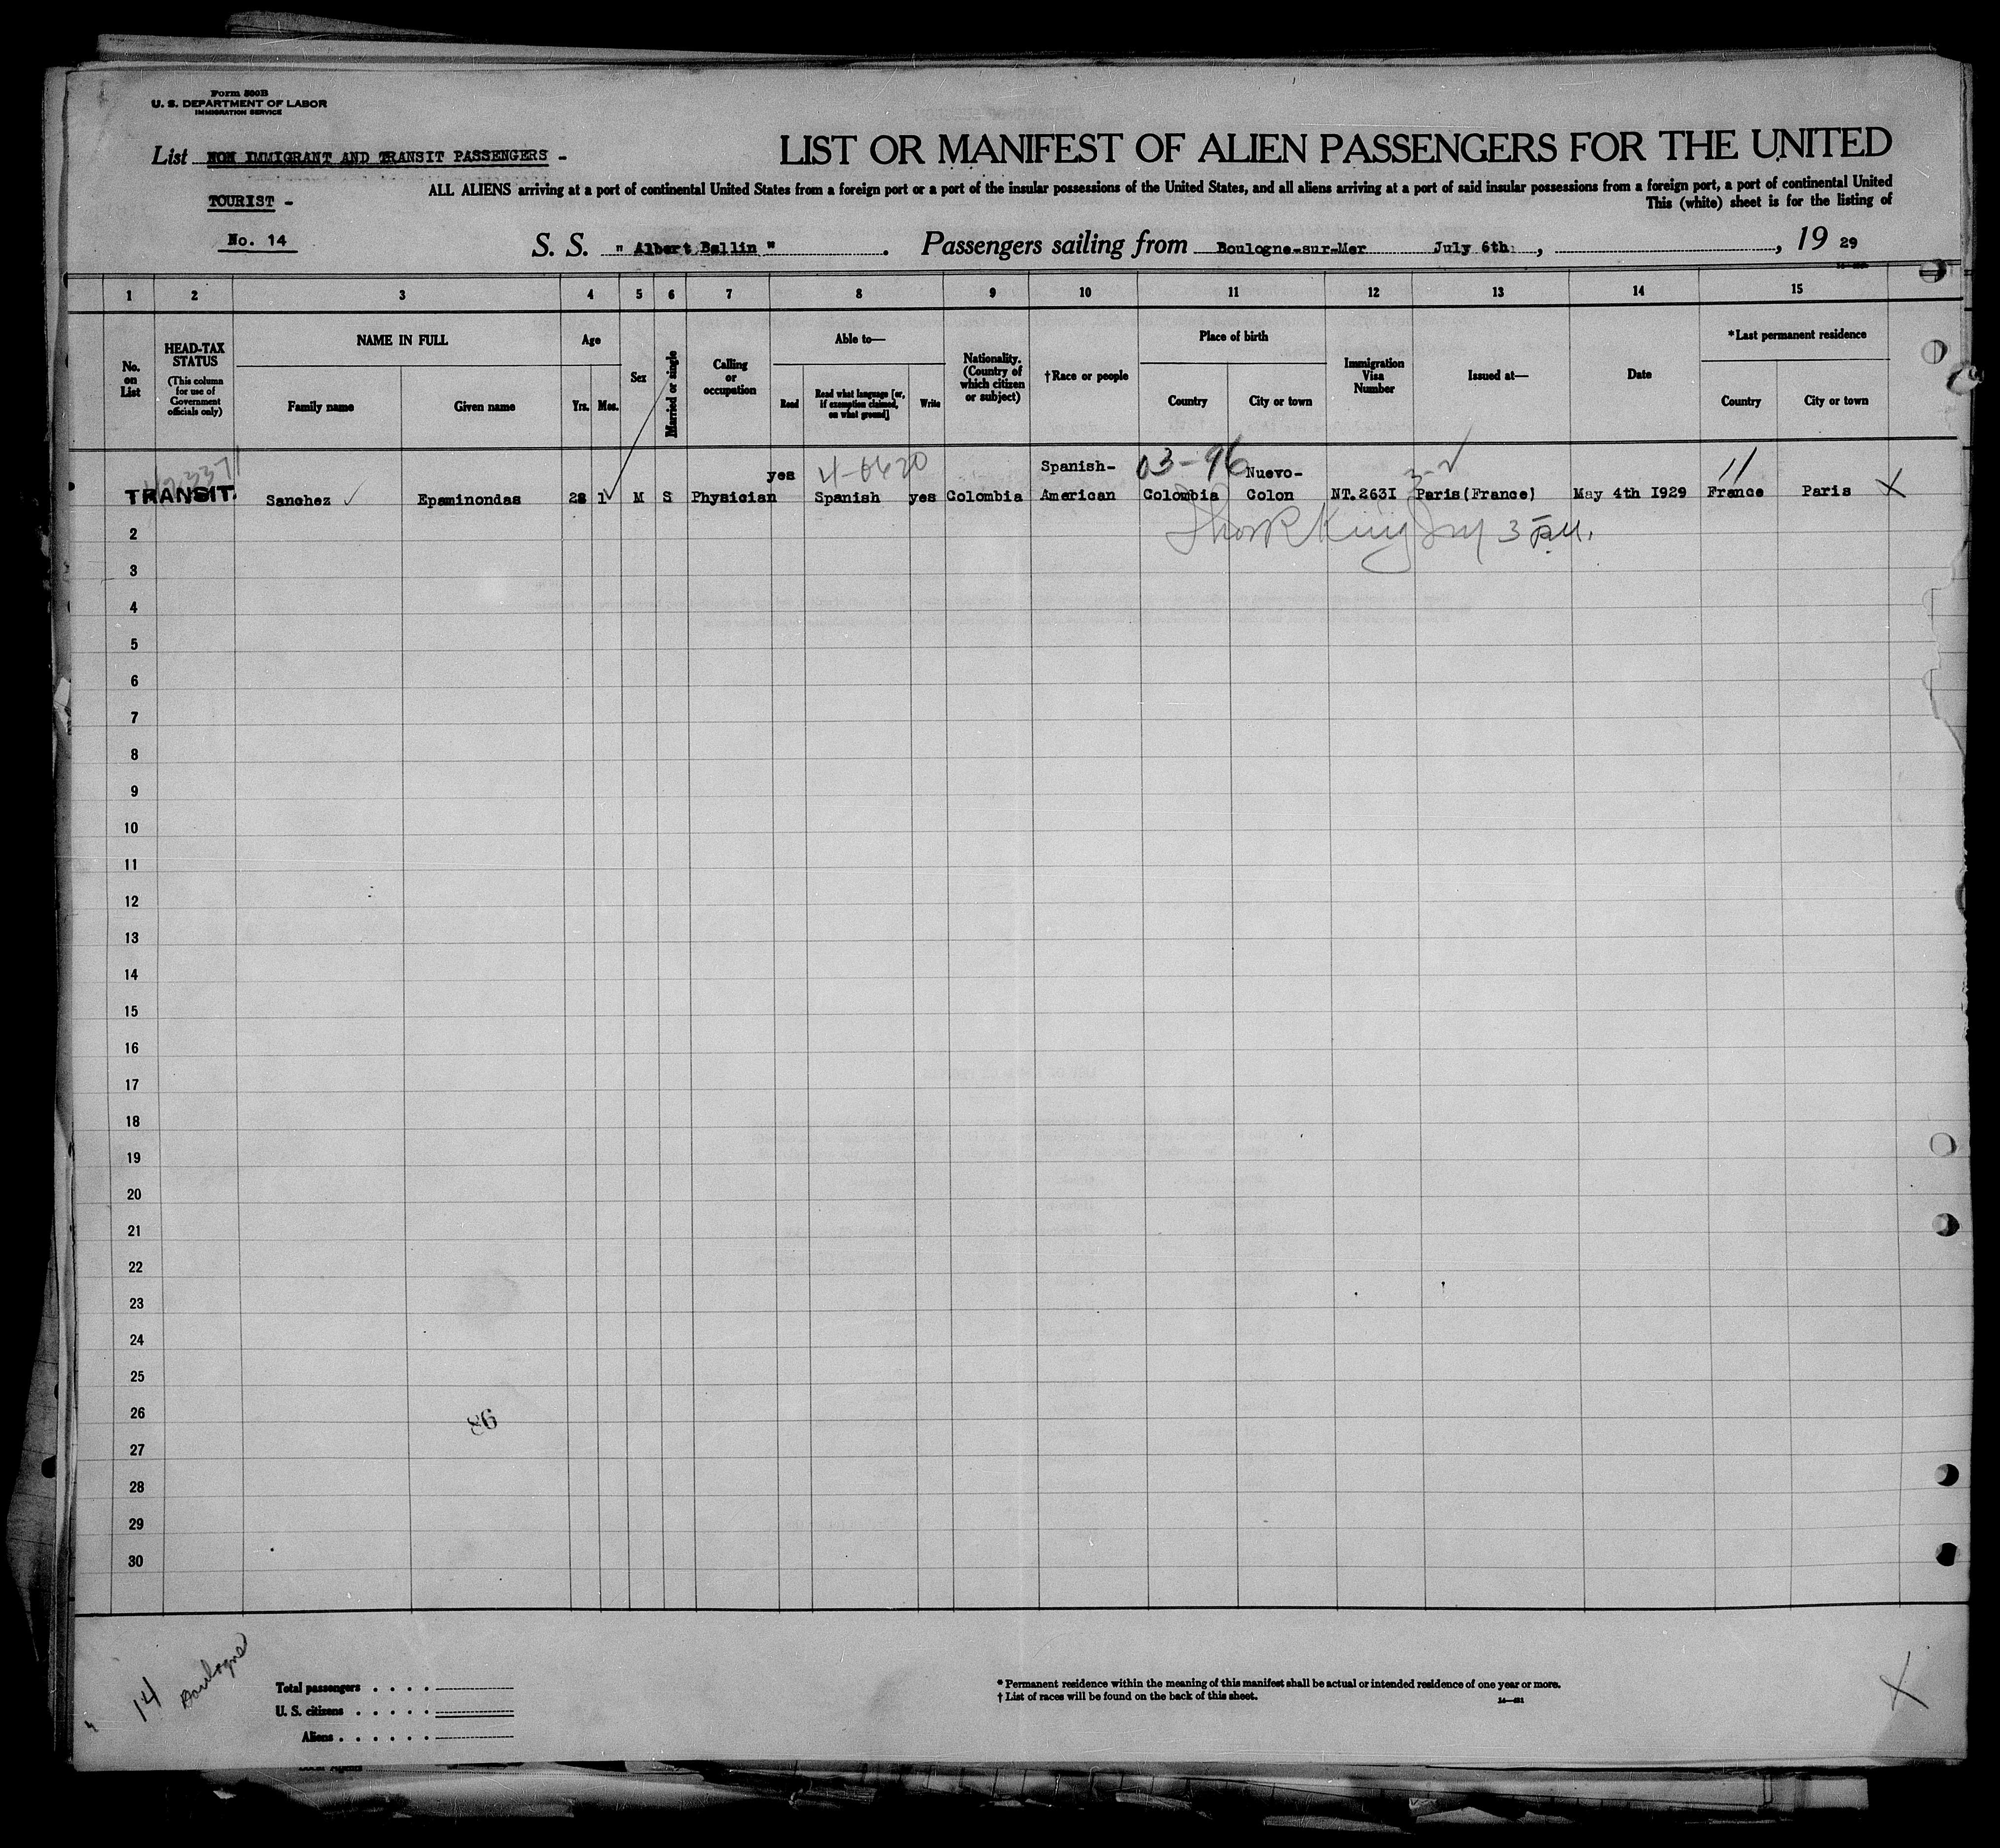 Form 500B
U. S. DEPARTMENT OF LABOR
IMMIGRATION SERVICE
List NON IMMIGRANT AND TRANSIT PASSENGERS -
TOURIST -
No. 14
LIST OR MANIFEST OF ALIEN PASSENGERS FOR THE UNITED
ALL ALIENS arriving at a port of continental United States from a foreign port or a port of the insular possessions of the United States, and all aliens arriving at a port of said insular possessions from a foreign port, a port of continental United
This (white) sheet is for the listing of
S. S. " Albert Ballin " . Passengers sailing from Boulogne-sur-Mer July 6th , , 19 29
1 2 3 4 5 6 7 8 9 10 11 12 13 14 15
No. on List
HEAD-TAX STATUS (This column for use of Government officials only)
NAME IN FULL
Family name Given name
Age
Yrs. Mos.
Sex
Married or single
Calling or occupation
Able to—
Read Read what language [or, if exemption claimed, on what ground] Write
Nationality. (Country of which citizen or subject)
†Race or people
Place of birth
Country City or town
Immigration Visa Number
Issued at—
Date
*Last permanent residence
Country City or town
yes 4-0620 Spanish- 03-96 Nuevo- 11
TRANSIT. Sanchez Epaminondas 28 1 M S Physician Spanish yes Colombia American Colombia Colon NT.2631 Paris(France) May 4th 1929 France Paris X
2
3
4
5
6
7
8
9
10
11
12
13
14
15
16
17
18
19
20
21
22
23
24
25
26
86
27
28
29
30
14 Boulogne
Total passengers . . . .
U. S. citizens . . . . .
Aliens . . . . . .
* Permanent residence within the meaning of this manifest shall be actual or intended residence of one year or more.
† List of races will be found on the back of this sheet.
X